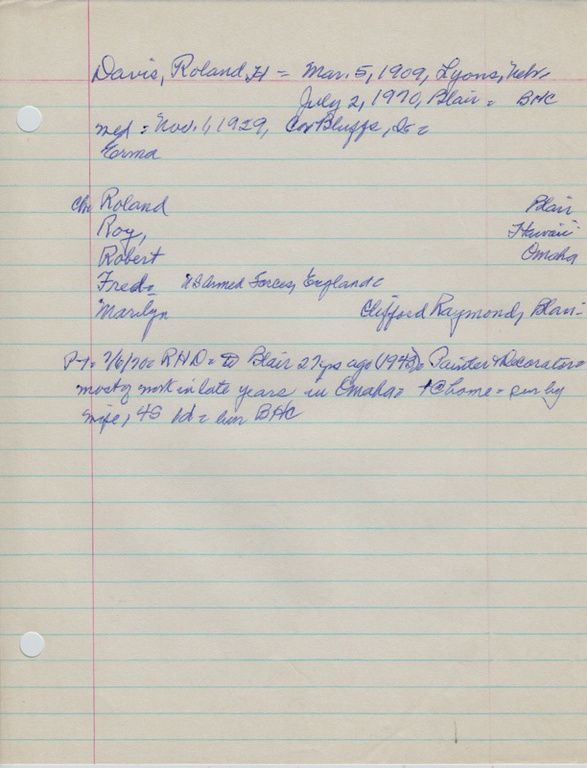 Davis, Roland H = Mar. 5, 1909, Lyons, Nebr.
July 2, 1970, Blair = BHC
med = Nov. 1, 1929, Co Bluffs, Ia =
Erma
Chn Roland Blair
Roy, Hawaii
Robert Omaha
Fred = US Armed Forces, England =
Marilyn Clifford Raymond, Blair =
P-T = 7/6/70 = RHD = to Blair 27 yrs ago (1943) = Painter & Decorator =
most of work in late years in Omaha = + @ home = sur by
wife, 4S 1d = bur BHC